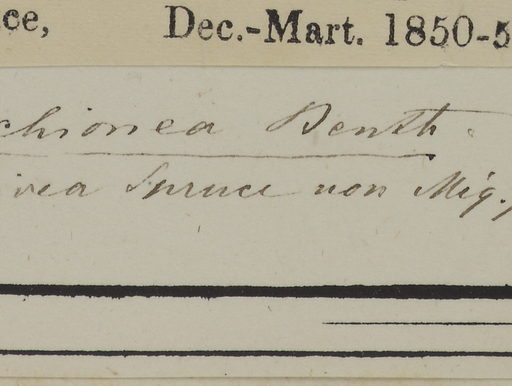 ce, Dec.-Mart. 1850-5
chionea Benth.
ivea Spruce non Miq.,